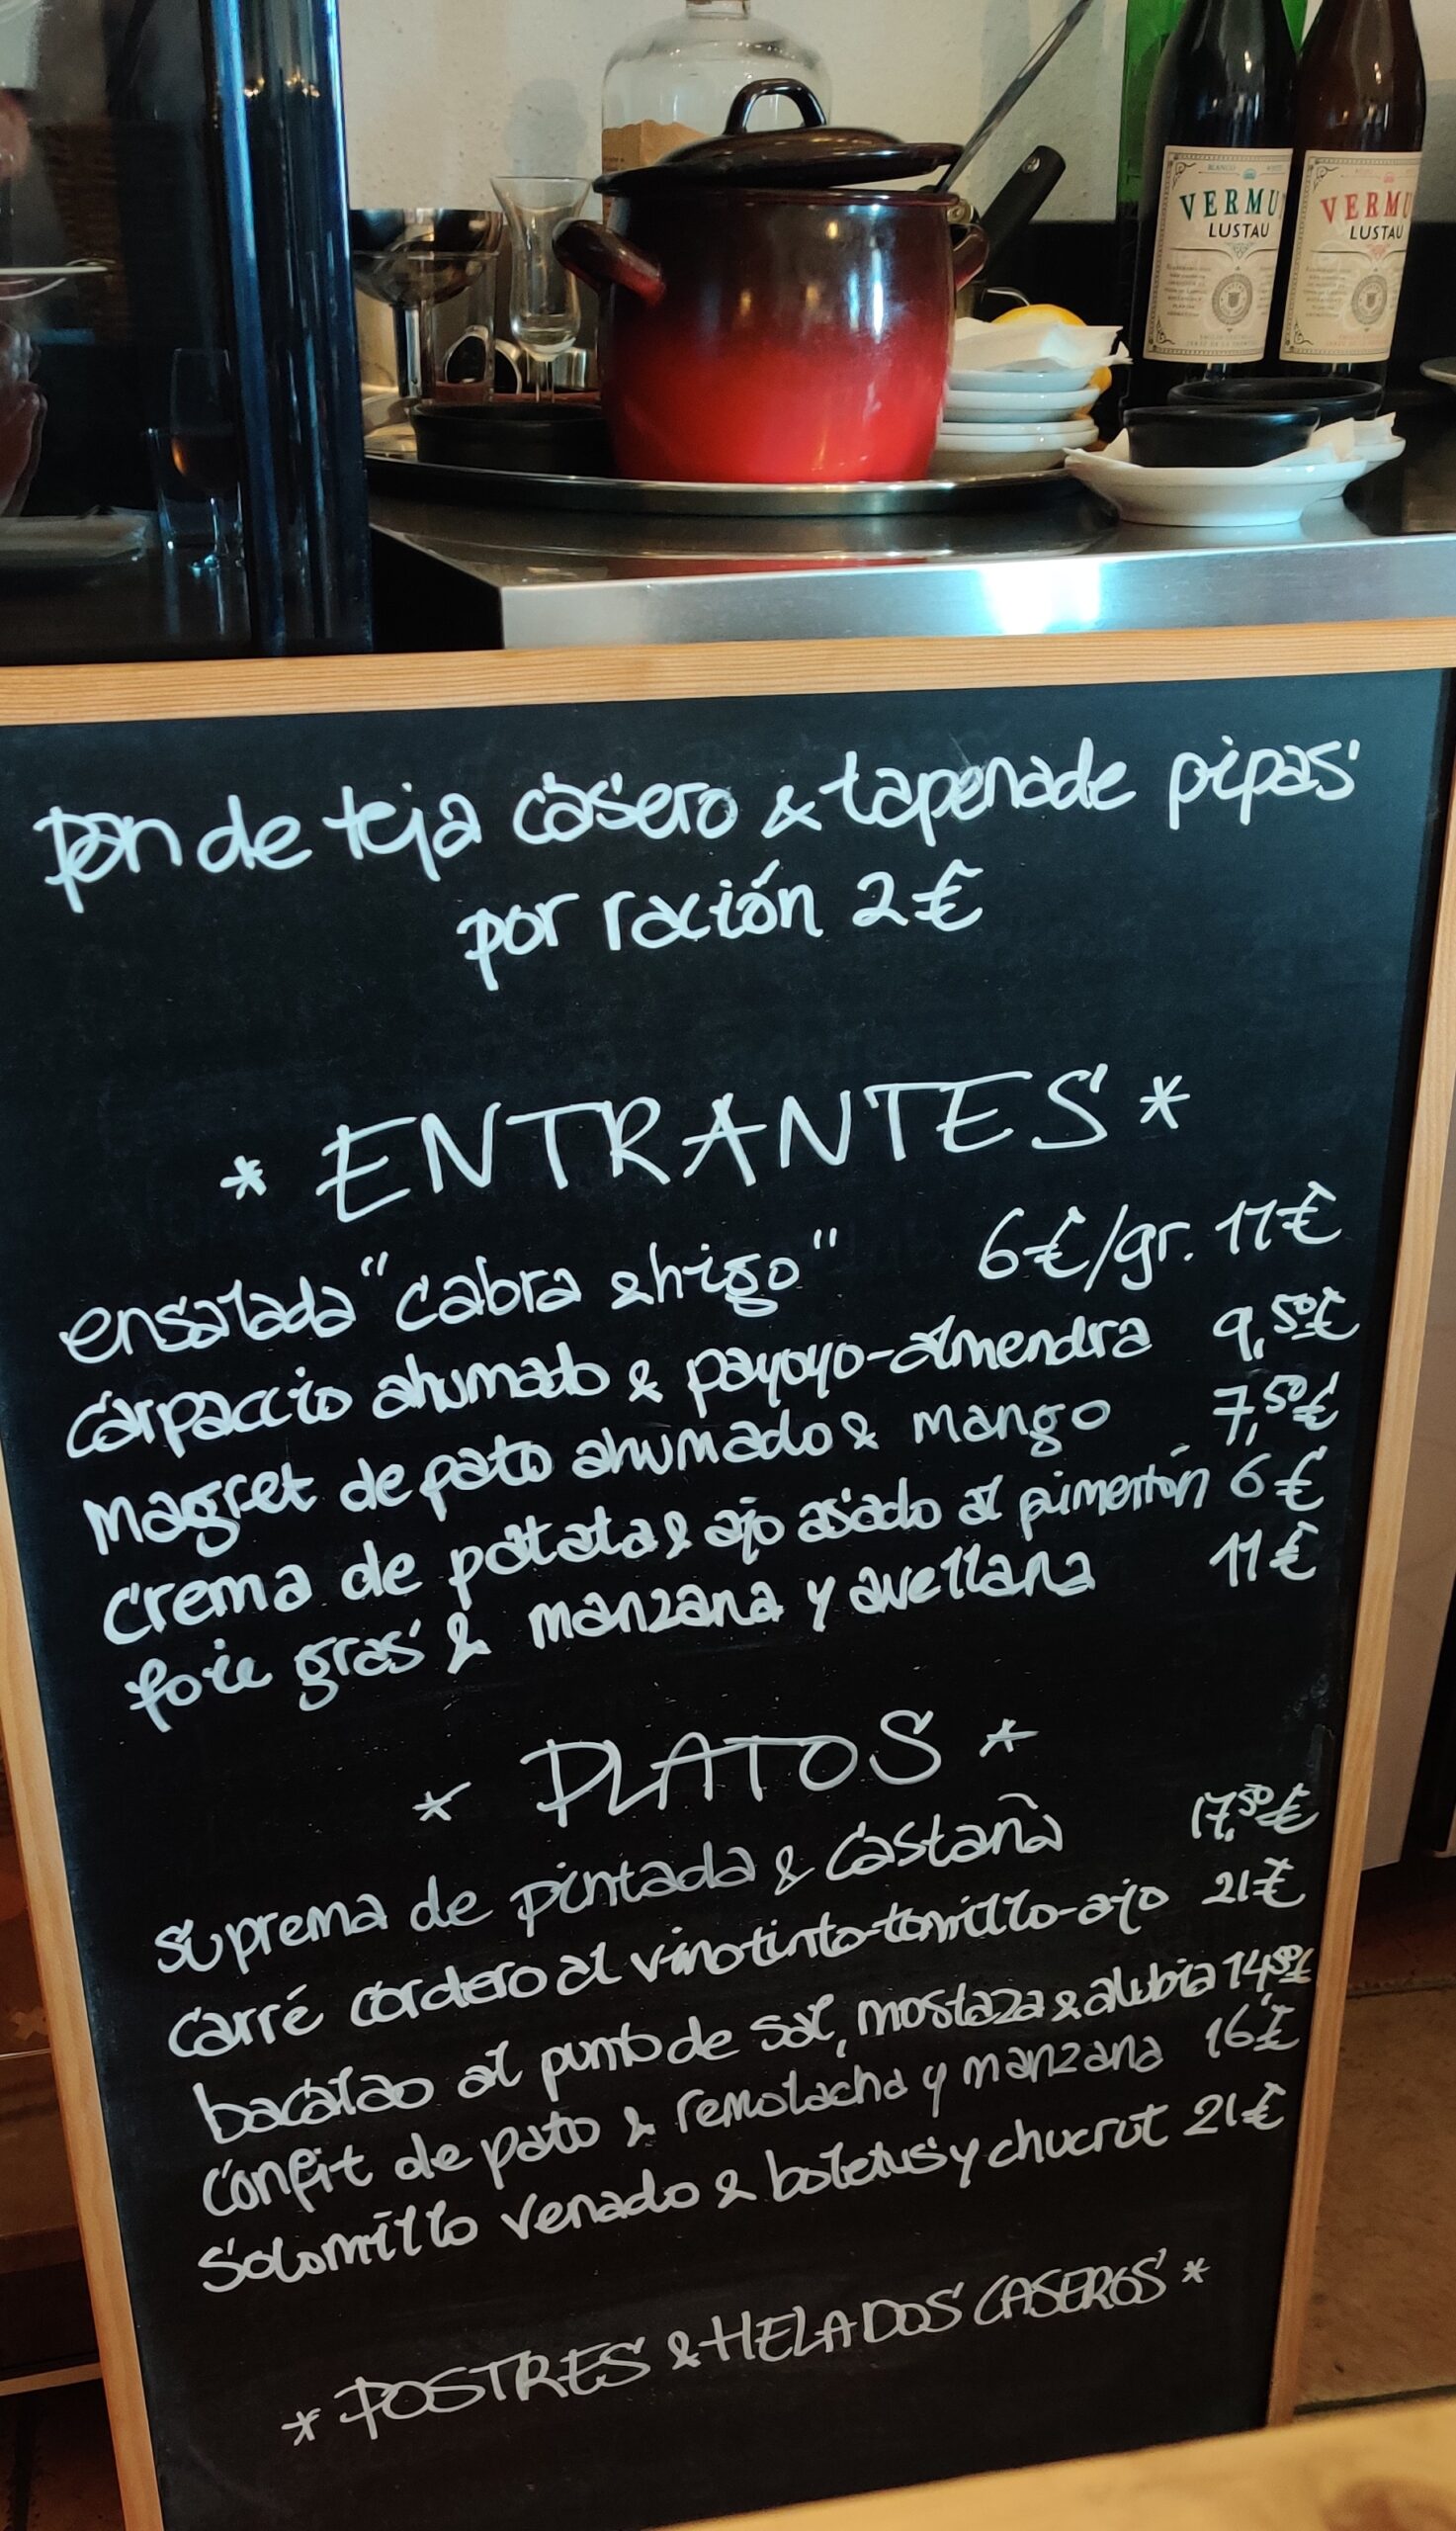 VERMU
LUSTAU
VERMU
LUSTAU
pan de teja casero & tapenade pipas
por ración 2€
* ENTRANTES *
ensalada "cabra & higo" 6€/gr. 11€
carpaccio ahumado & payoyo-almendra 9,50€
magret de pato ahumado & mango 7,50€
crema de patata & ajo asado al pimentón 6€
foie gras & manzana y avellana 11€
* PLATOS *
suprema de pintada & castaña 17,50€
carré cordero al vino tinto-tomillo-ajo 21€
bacalao al punto de sal, mostaza & alubia 14,50€
confit de pato & remolacha y manzana 16€
solomillo venado & boletus y chucrut 21€
* POSTRES & HELADOS CASEROS *